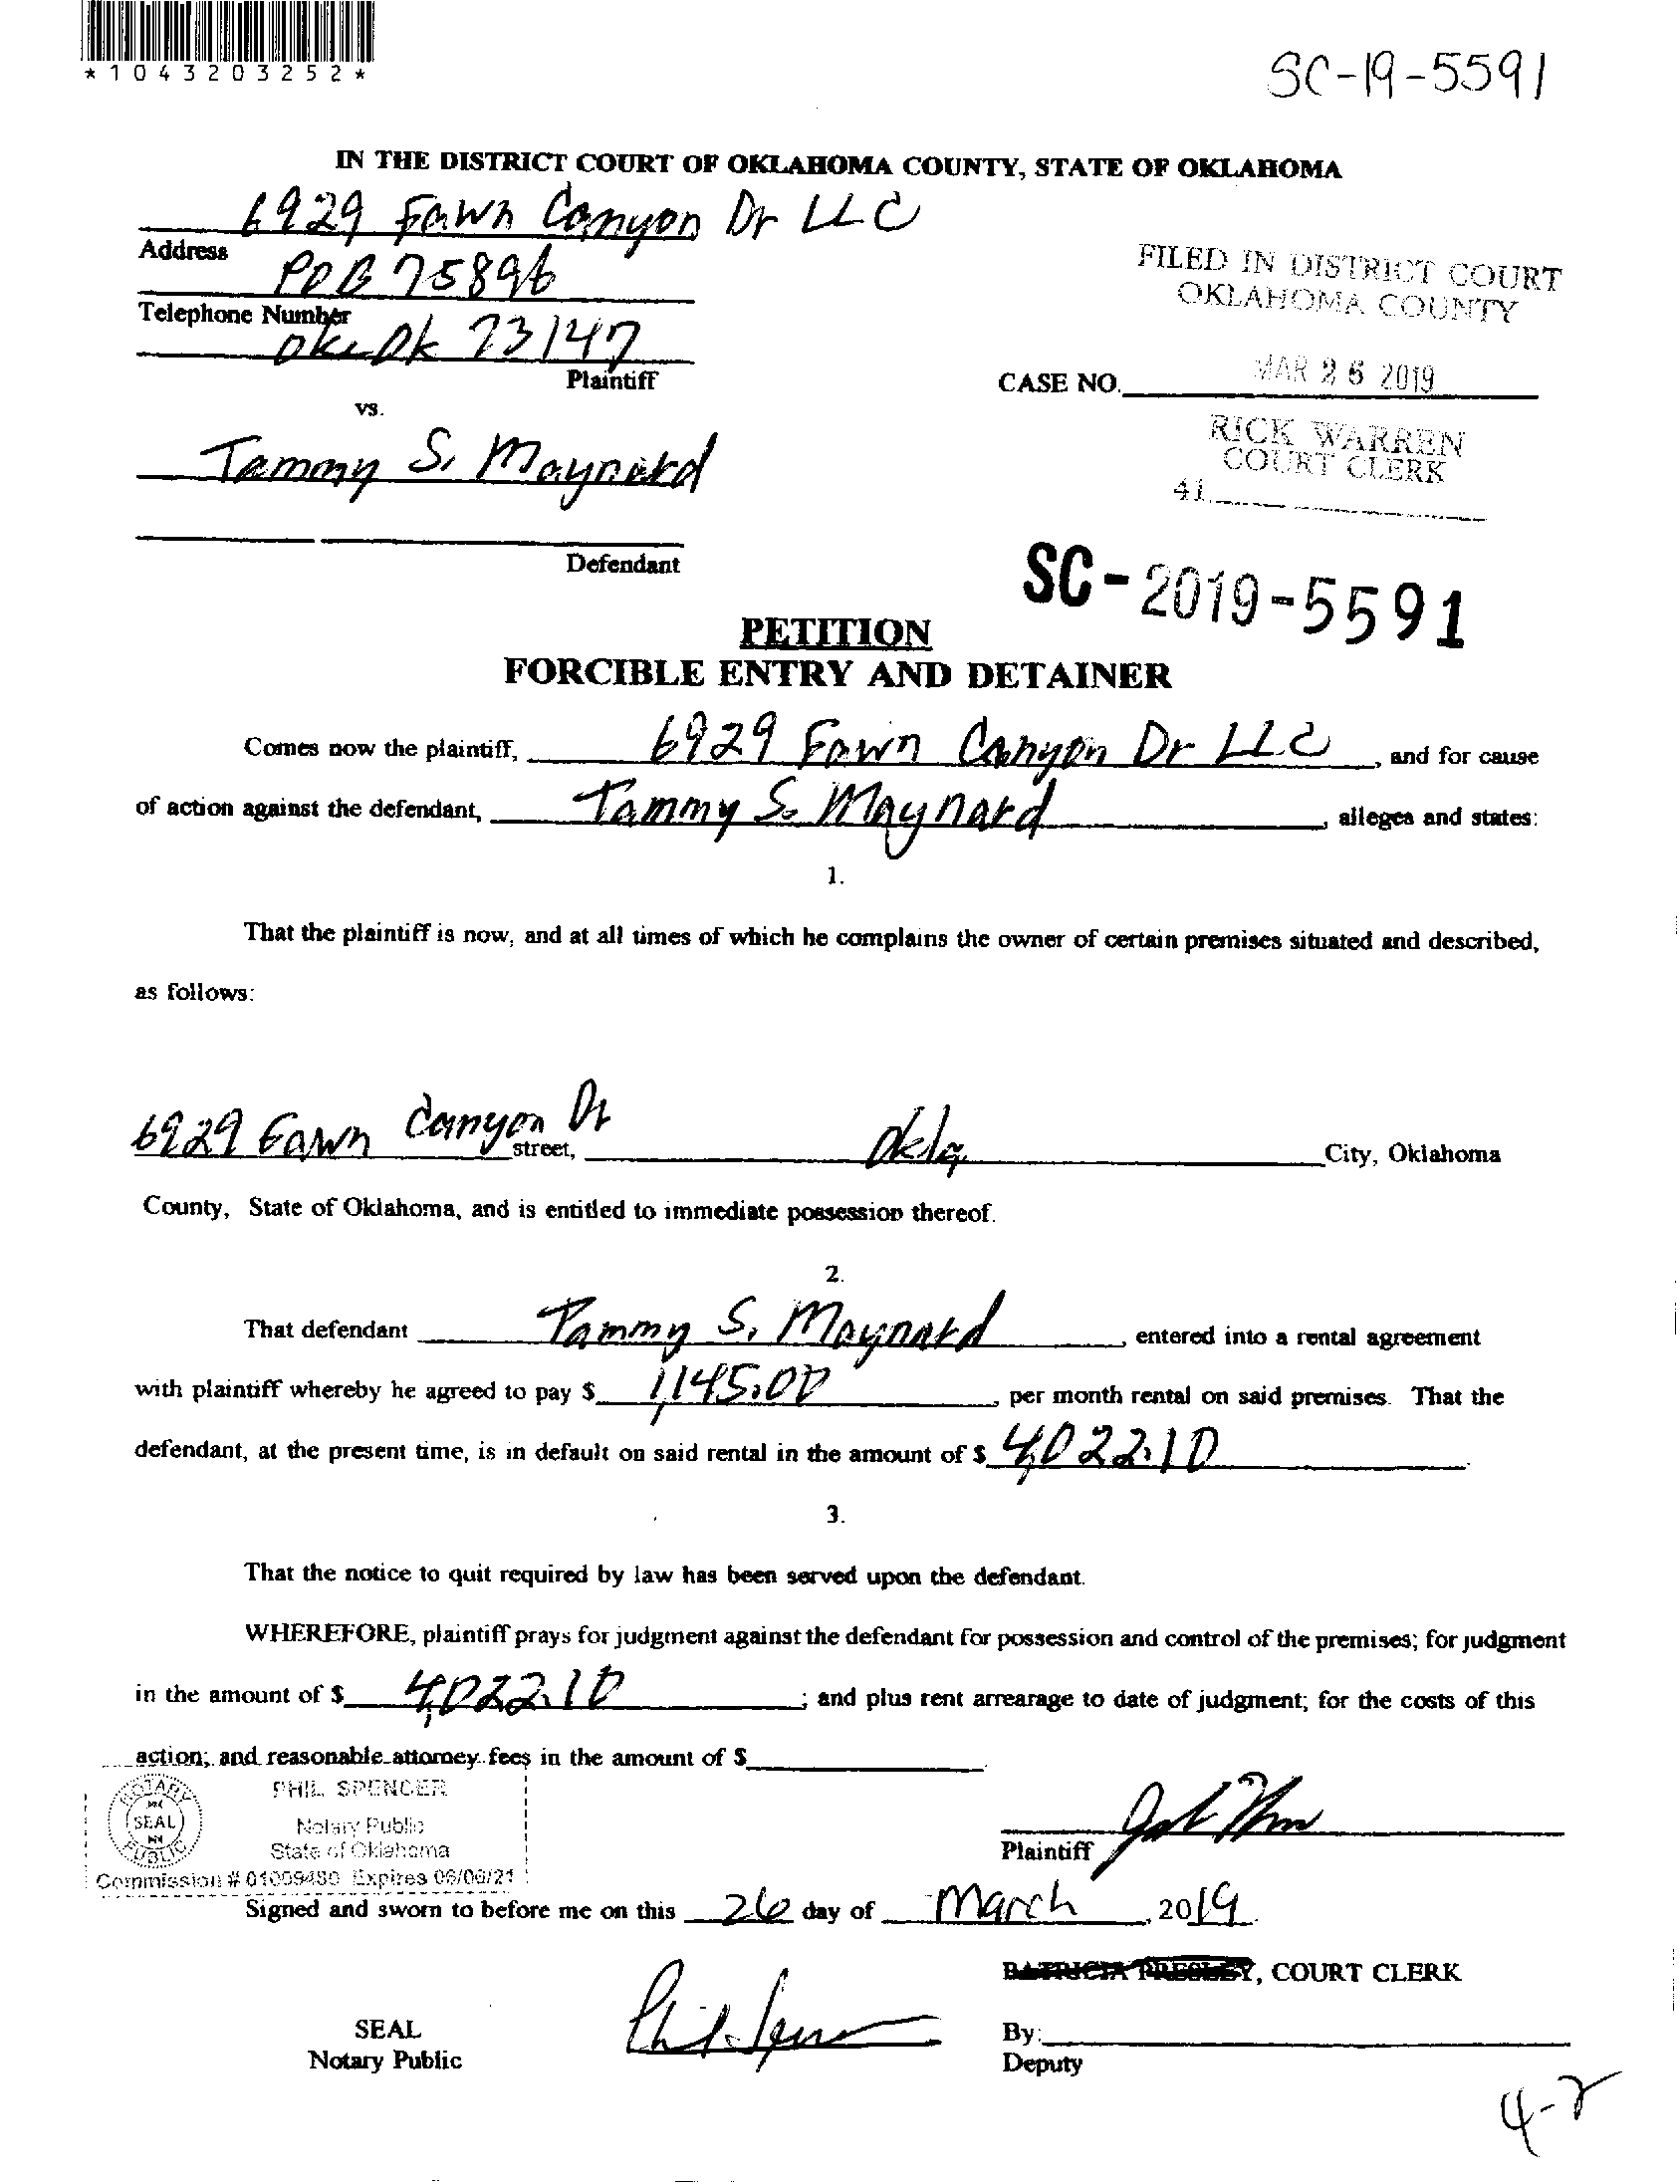 *1043203252*
SC-19-5591
IN THE DISTRICT COURT OF OKLAHOMA COUNTY, STATE OF OKLAHOMA
6929 Fawn Canyon Dr LLC
Address
POB 75896
Telephone Number
okc Ok 73147
Plaintiff
vs.
Tammy S. Maynard
Defendant
FILED IN DISTRICT COURT
OKLAHOMA COUNTY
MAR 26 2019
CASE NO.
RICK WARREN
COURT CLERK
41
SC-2019-5591
PETITION
FORCIBLE ENTRY AND DETAINER
Comes now the plaintiff, 6929 Fawn Canyon Dr LLC, and for cause
of action against the defendant, Tammy S. Maynard, alleges and states:
1.
That the plaintiff is now, and at all times of which he complains the owner of certain premises situated and described,
as follows:
6929 Fawn Canyon Dr street, Okla City, Oklahoma
County, State of Oklahoma, and is entitled to immediate possession thereof.
2.
That defendant Tammy S. Maynard, entered into a rental agreement
with plaintiff whereby he agreed to pay $ 1,145.00, per month rental on said premises. That the
defendant, at the present time, is in default on said rental in the amount of $ 4,022.10
3.
That the notice to quit required by law has been served upon the defendant.
WHEREFORE, plaintiff prays for judgment against the defendant for possession and control of the premises; for judgment
in the amount of $ 4,022.10; and plus rent arrearage to date of judgment; for the costs of this
action; and reasonable attorney fees in the amount of $
NOTARY
SEAL
PUBLIC
PHIL SPENCER
Notary Public
State of Oklahoma
Commission # 01009480 Expires 06/06/21
Plaintiff
Signed and sworn to before me on this 26 day of March, 2019.
PATRICIA PRESLEY, COURT CLERK
Phil Spencer
SEAL
Notary Public
By:
Deputy
4-2